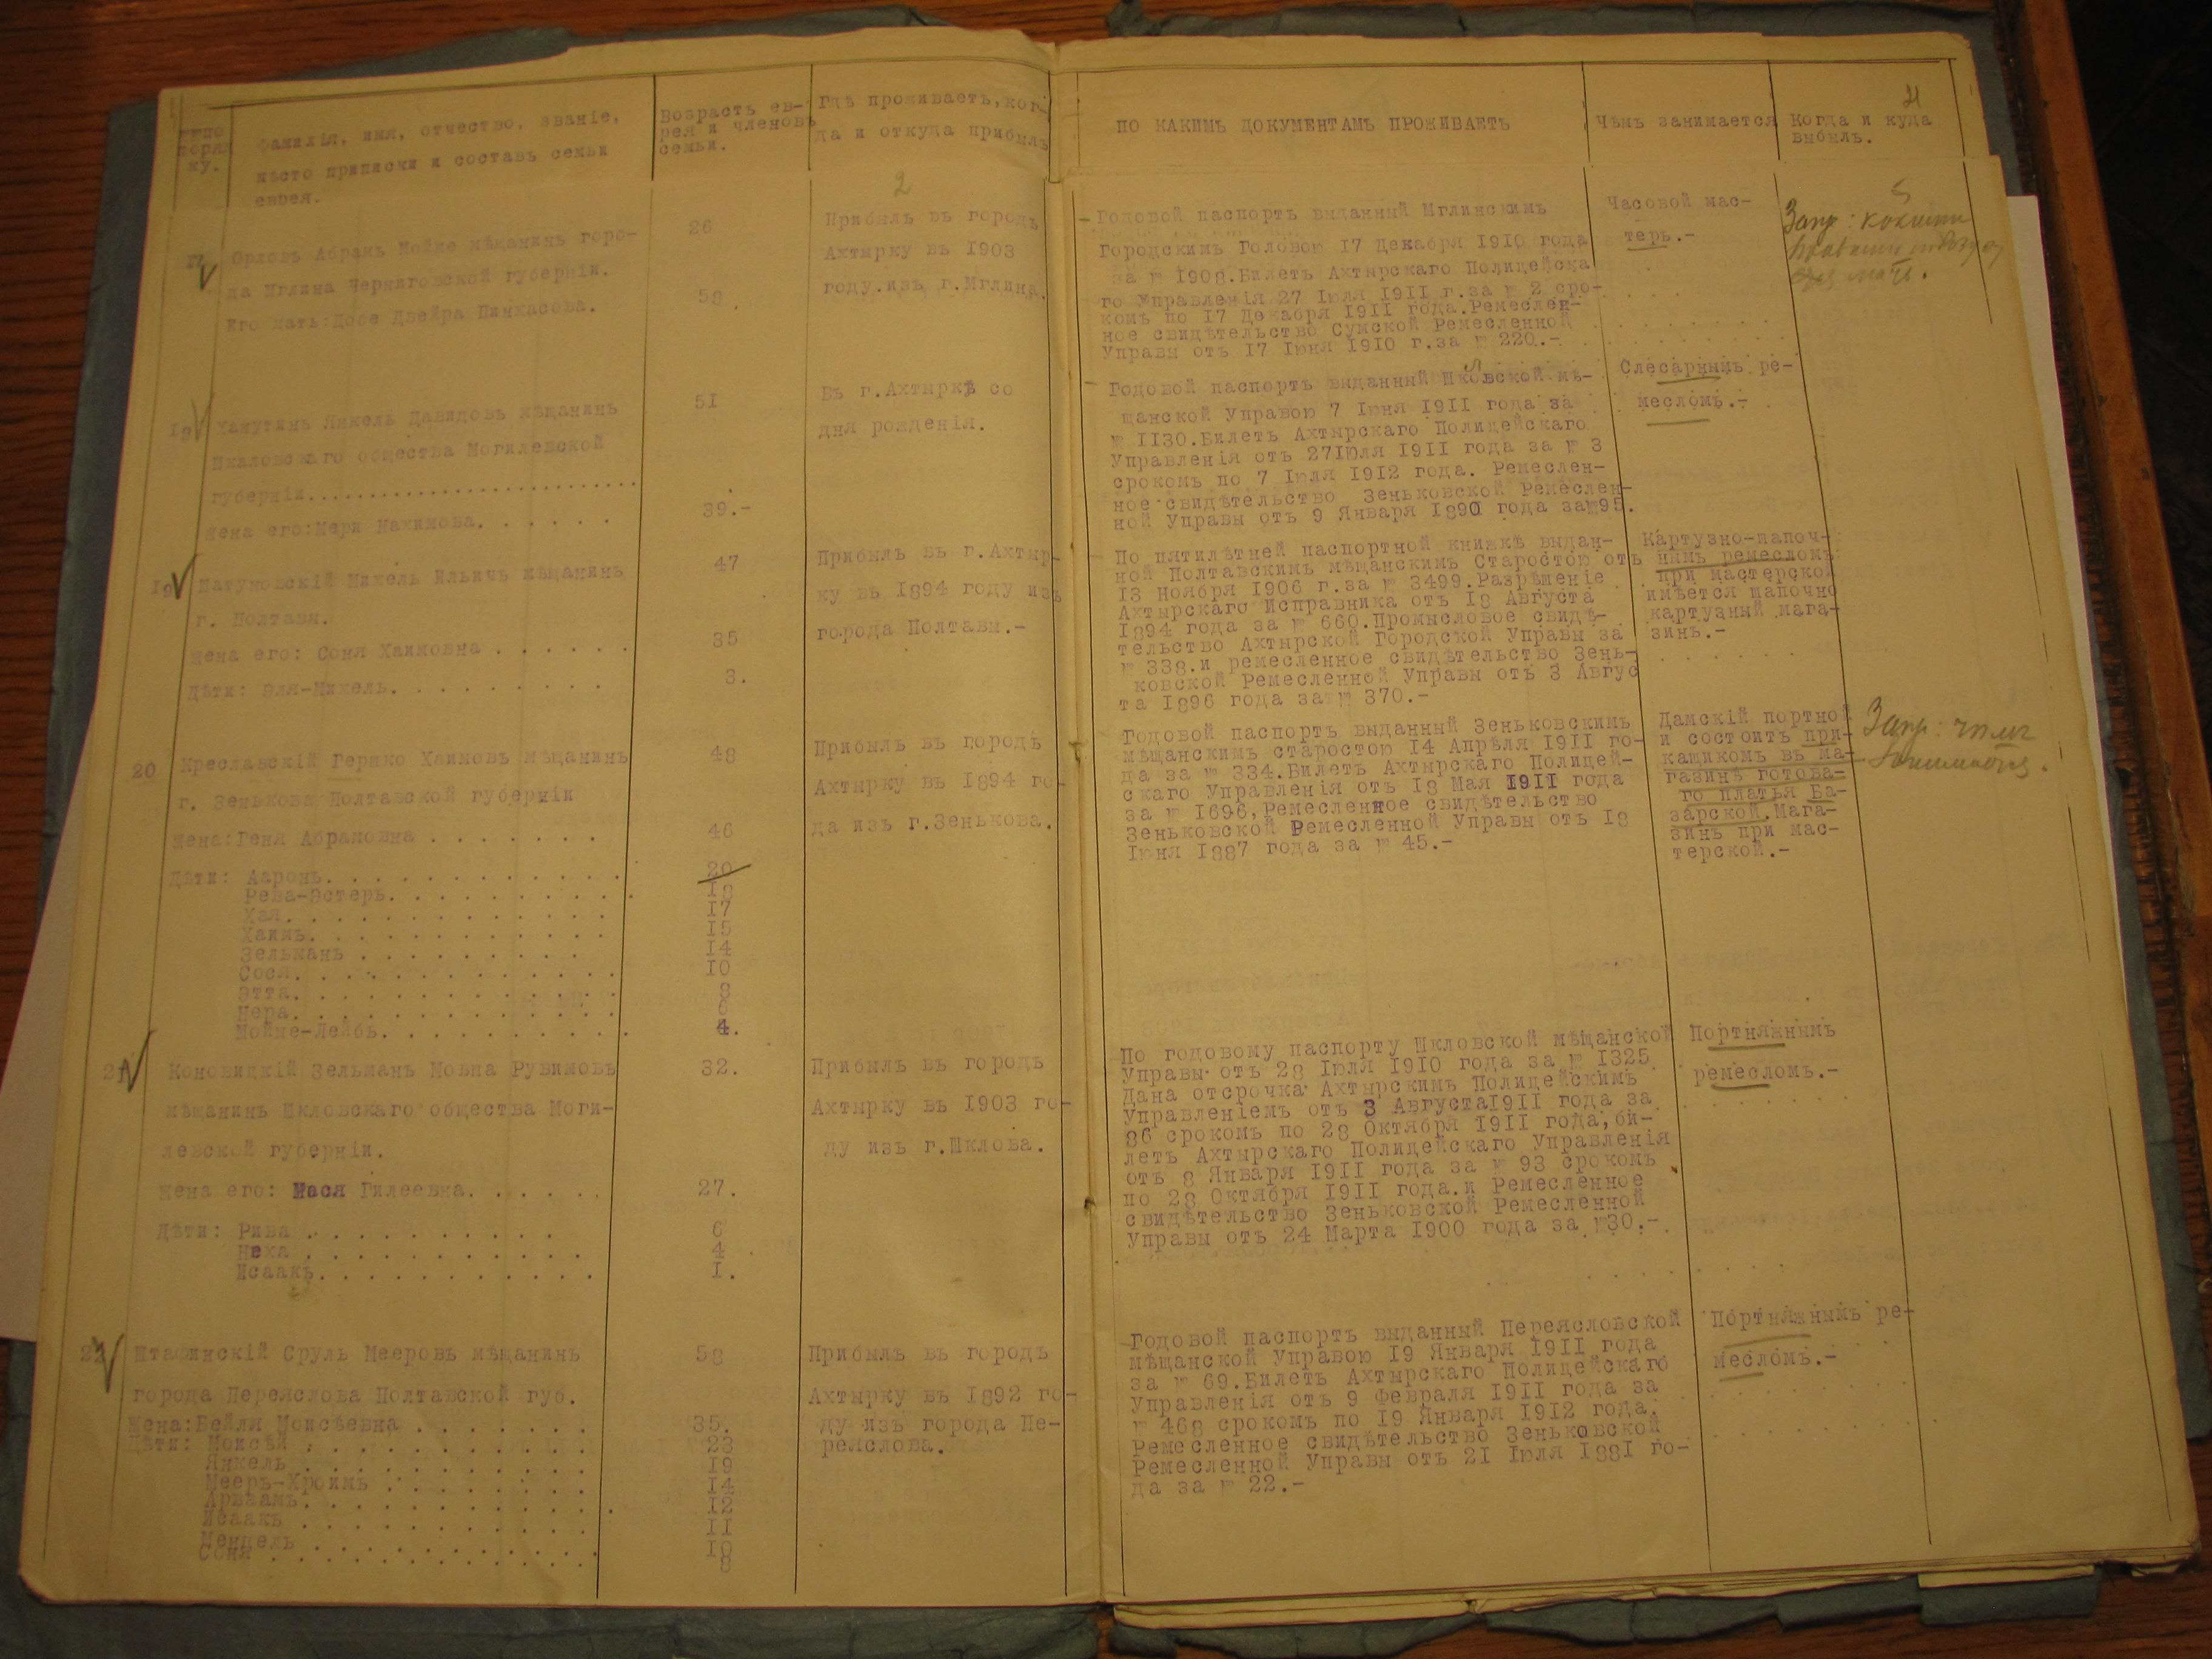 по
поряд
ку.
Фамилія, имя, отчество, званіе,
мѣсто приписки и составъ семьи
еврея.
Возрастъ ев-
рея и членовъ
семьи.
Гдѣ проживаетъ, ког-
да и откуда прибылъ
ПО КАКИМЪ ДОКУМЕНТАМЪ ПРОЖИВАЕТЪ
Чѣмъ занимается
Когда и куда
выбылъ.
2
Орловъ Абрамъ Мойше мѣщанинъ горо-
да Мглина Черниговской губерніи.
Его мать: Добе Двейра Пинхасова.
26
58.
Прибылъ въ городъ
Ахтырку въ 1903
году.изъ г.Мглина.
Годовой паспортъ выданный Мглинскимъ
Городскимъ Головою 17 Декабря 1910 года
за № 1908.Билетъ Ахтырскаго Полицейска
го Управленія 27 Іюля 1911 г.за № 2 сро-
комъ по 17 Декабря 1911 года.Ремеслен-
ное свидѣтельство Сумской Ремесленной
Управы отъ 17 Іюня 1910 г.за № 220.-
Часовой мас-
теръ.-
18
Ханутинъ Янкель Давидовъ мѣщанинъ
Шкловскаго общества Могилевской
губерніи..........................
Жена его:Мери Нахимова. . . . . .
51
39.-
Въ г.Ахтыркѣ со
дня рожденія.
Годовой паспортъ выданный Шкловской мѣ-
щанской Управою 7 Іюня 1911 года за
№ 1130.Билетъ Ахтырскаго Полицейскаго
Управленія отъ 27Іюля 1911 года за № 3
срокомъ по 7 Іюля 1912 года. Ремеслен-
ное свидѣтельство Зеньковской Ремеслен-
ной Управы отъ 9 Января 1890 года за№95.
Слесарнымъ ре-
месломъ.-
19
Матуновскій Михель Ильичъ мѣщанинъ
г. Полтавы.
Жена его: Соня Хаимовна . . . . . .
Дѣти: Эля-Михель. . . . . . . . .
47
35
3.
Прибылъ въ г.Ахтыр-
ку въ 1894 году изъ
города Полтавы.-
По пятилѣтней паспортной книжкѣ выдан-
ной Полтавскимъ мѣщанскимъ Старостою отъ
13 Ноября 1906 г.за № 3499.Разрѣшеніе
Ахтырскаго Исправника отъ 18 Августа
1894 года за № 660.Промысловое свидѣ-
тельство Ахтырской Городской Управы за
№ 338.и ремесленное свидѣтельство Зень-
ковской Ремесленной Управы отъ 3 Авгус
та 1896 года за № 370.-
Картузно-шапоч-
нымъ ремесломъ
при мастерской
имѣется шапочно
картузный мага-
зинъ.-
20
Креславскій Герцко Хаимовъ мѣщанинъ
г. Зенькова Полтавской губерніи
Жена:Геня Абрамовна . . . . . . .
Дѣти: Ааронъ. . . . . . . . . . . .
Рева-Эстеръ. . . . . . . . . . .
Хая. . . . . . . . . . . . . .
Хаимъ. . . . . . . . . . . . .
Зельманъ . . . . . . . . . .
Сося. . . . . . . . . . . . . .
Этта. . . . . . . . . . . . . .
Мера. . . . . . . . . . . . . .
Мойше-Лейбъ. . . . . . . . . . .
48
46
20
18
17
15
14
10
8
6
4.
Прибылъ въ городъ
Ахтырку въ 1894 го-
да изъ г.Зенькова.
Годовой паспортъ выданный Зеньковскимъ
мѣщанскимъ старостою 14 Апрѣля 1911 го-
да за № 334.Билетъ Ахтырскаго Полицей-
скаго Управленія отъ 18 Мая 1911 года
за № 1696,Ремесленное свидѣтельство
Зеньковской Ремесленной Управы отъ 18
Іюня 1887 года за № 45.-
Дамскій портной
и состоитъ при-
кащикомъ въ ма-
газинѣ готова-
го платья Ба-
зарской.Мага-
зинъ при мас-
терской.-
21
Коновицкій Зельманъ Мовша Рувимовъ
мѣщанинъ Шкловскаго общества Моги-
левской губерніи.
Жена его: Нася Гилеевна. . . . . .
Дѣти: Рива . . . . . . . . . .
Неха . . . . . . . . . . .
Исаакъ. . . . . . . . . . .
32.
27.
6
4
1.
Прибылъ въ городъ
Ахтырку въ 1903 го-
ду изъ г.Шклова.
По годовому паспорту Шкловской мѣщанской
Управы отъ 28 Іюля 1910 года за № 1325.
Дана отсрочка Ахтырскимъ Полицейскимъ
Управленіемъ отъ 3 Августа1911 года за
86 срокомъ по 28 Октября 1911 года, би-
летъ Ахтырскаго Полицейскаго Управленія
отъ 8 Января 1911 года за № 93 срокомъ
по 28 Октября 1911 года.и Ремесленное
свидѣтельство Зеньковской Ремесленной
Управы отъ 24 Марта 1900 года за №30.-
Портняжнымъ
ремесломъ.-
22
Штафинскій Сруль Мееровъ мѣщанинъ
города Переяслова Полтавской губ.
Жена:Бейля Моисѣевна . . . . . . .
Дѣти: Моисѣй . . . . . . . . . . .
Янкель . . . . . . . . . . .
Мееръ-Хроимъ . . . . . . . .
Арваамъ. . . . . . . . . . . .
Исаакъ . . . . . . . . . . .
Мендель . . . . . . . . . . .
Соня . . . . . . . . . . . . .
58
35.
23
19
14
12
11
10
8
Прибылъ въ городъ
Ахтырку въ 1892 го-
ду изъ города Пе-
реяслова.
Годовой паспортъ выданный Переясловской
мѣщанской Управою 19 Января 1911 года
за № 69.Билетъ Ахтырскаго Полицейскаго
Управленія отъ 9 Февраля 1911 года за
№ 468 срокомъ по 19 Января 1912 года.
Ремесленное свидѣтельство Зеньковской
Ремесленной Управы отъ 21 Іюля 1881 го-
да за № 22.-
Портняжнымъ ре-
месломъ.-